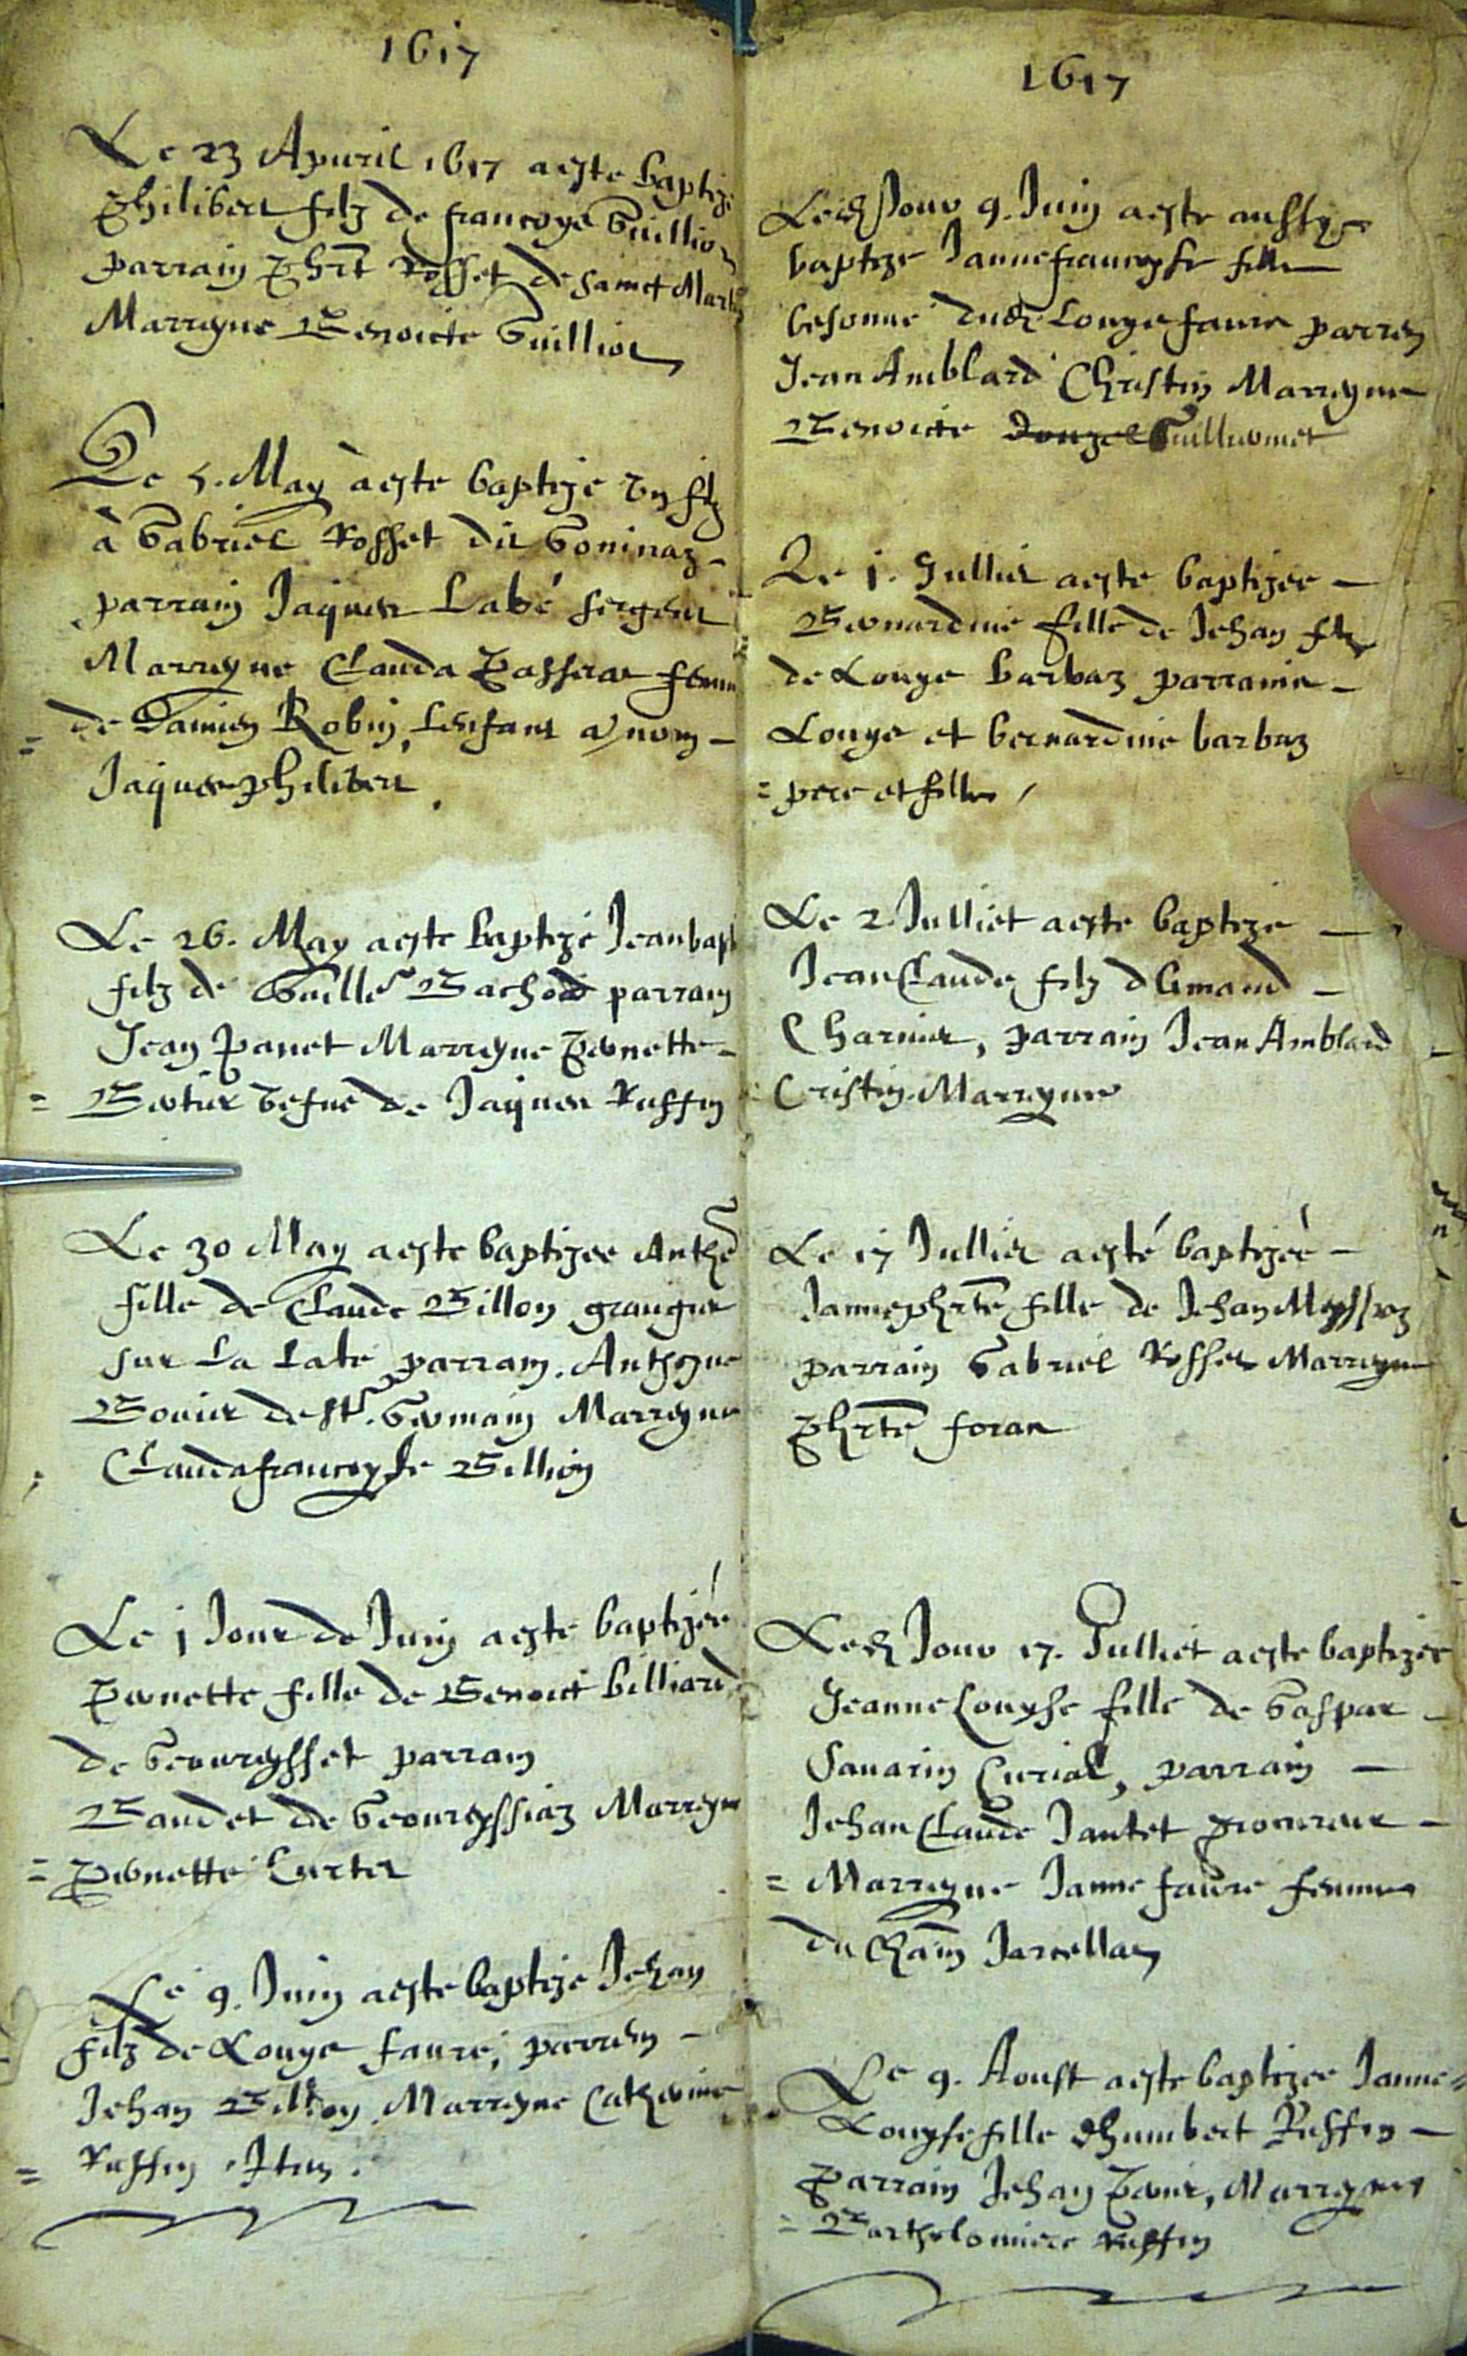 1617
Le 23 Apuril 1617 aeste baptize
Philibert filz de francoys Guillio
parrain Phrt Rosset de sainct Mart
Marreyne Benoicte Guilliot
Le 5. May àeste baptize Vn filz
à Gabriel Rosset dit Goninaz
parrain Jaques Labé sergent
Marreyne Clauda Passerat femm
de Damien Robin, Lenfant a nom
Jaques philibert
Le 26. May aeste baptizé Jeanbapt
filz de Guille Bachod parrain
Jean Panet Marreyne Pernette
Bertier Vefue de Jaques Ruffin
Le 30 May aeste baptizee Anthe
fille de Claude Billon grangier
sur La Labé parrain. Anthoyne
Bouier de st. Germain Marreyne
Claudafrancoyse Billion
Le j Jour de Juin aeste baptizée
Pernette fille de Benoict billiard
de Geoureysset parrain
Baudet de Geoureyssiaz Marreyne
Pernette Curtet
Le 9. Juin aeste baptize Jehan
filz de Louys faure, parrein
Jehan Billion Marreyne Catherine
Ruffin
1617
Led Jour 9. Juin aeste aussy
baptize Jannefrancoyse fille
besonne dud Louys faure parrein
Jean Amblard Christin Marreyne
Benoicte Donzel Guilliomet
Le j. Jullier aeste baptizee
Bernardine fille de Jehan filz
de Louys barbaz parrains
Louys et bernardine barbaz
pere et fille
Le 2 Julliet aeste baptize
JeanClaude filz dAmand
Charnier, parrain Jean Amblard
Cristin Marreyne
Le 17 Jullier aesté baptizeé
Jannephrte fille de Jehan Meyssiez
parrain Gabriel Rosset Marreyne
Phrte foran
Led Jour 17. Julliet aeste baptizee
Jeanne Louyse fille de Gaspar
Sauarin Curial, parrain
JehanClaude Jantet procureur
Marreyne Janne faure femme
du Chain Jarcellan
Le 9. Aoust aeste baptizee Janne
Louyse fille dhumbert Ruffin
Parrain Jehan Pernier, Marreyne
Bartholomiere Ruffin